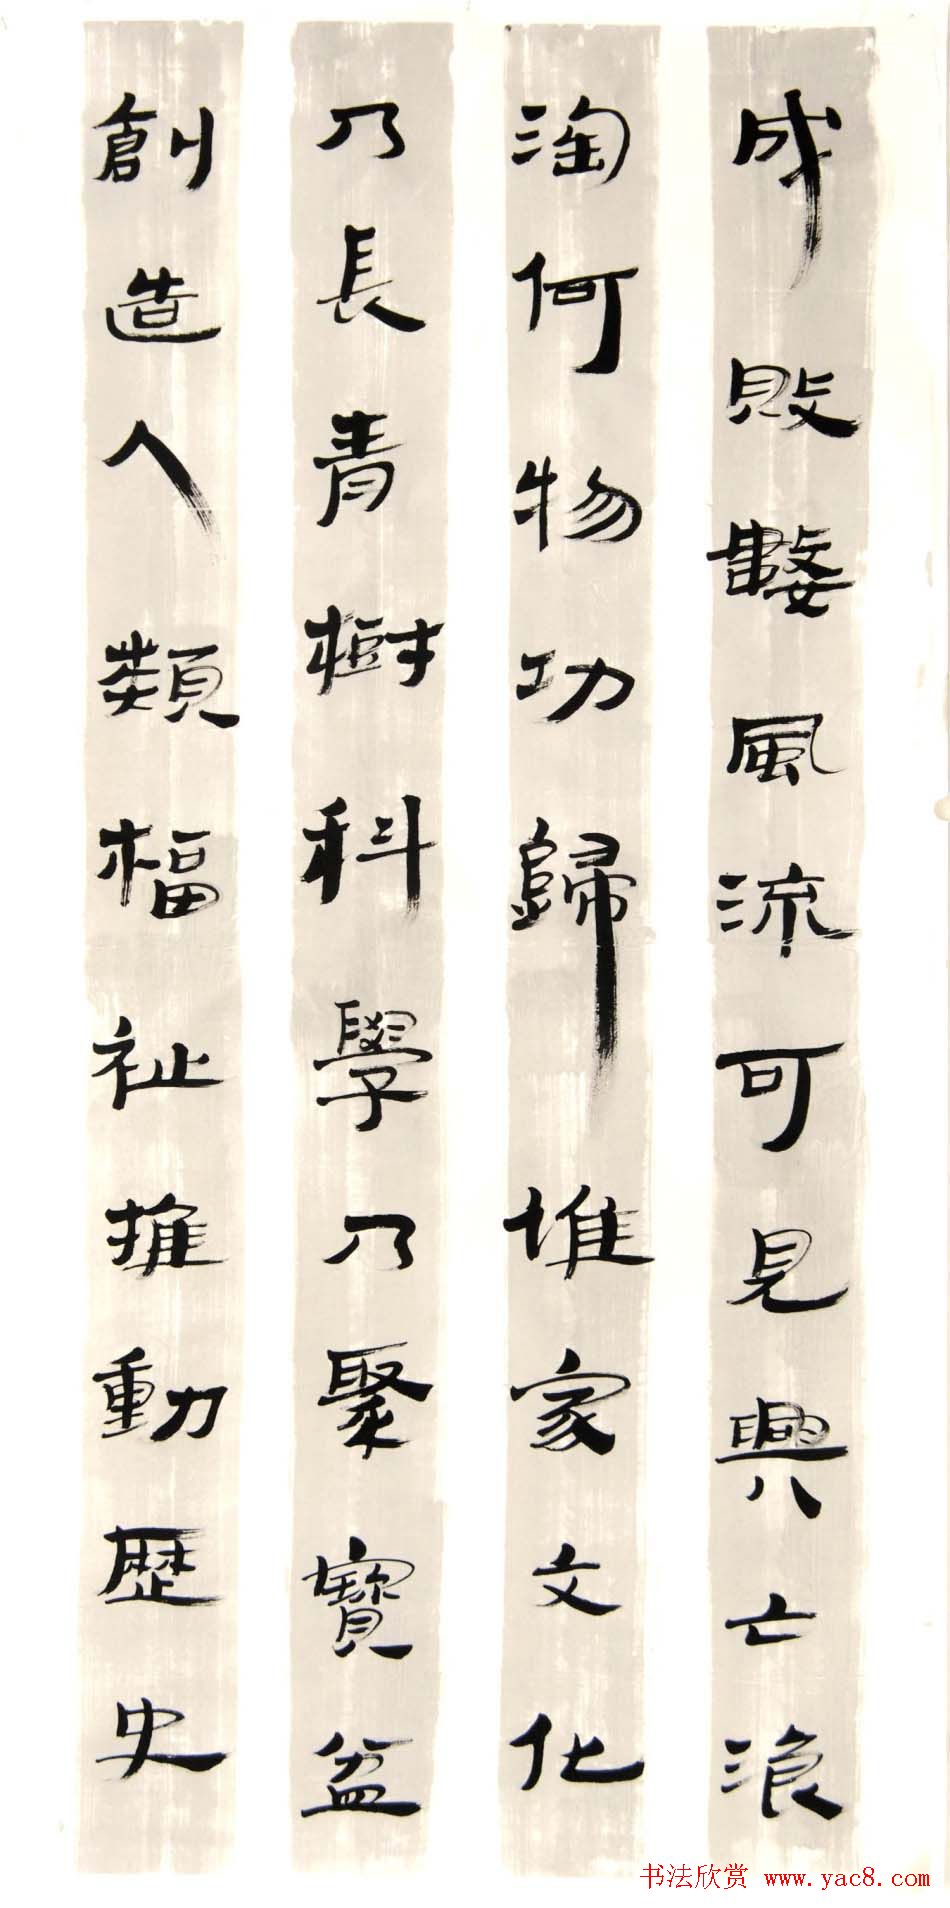 成敗數風流可見興亡浪
淘何物功歸堆家文化
乃長青樹科學乃聚寶盆
創造人類福祉推動歷史
书法欣赏 www.yac8.com